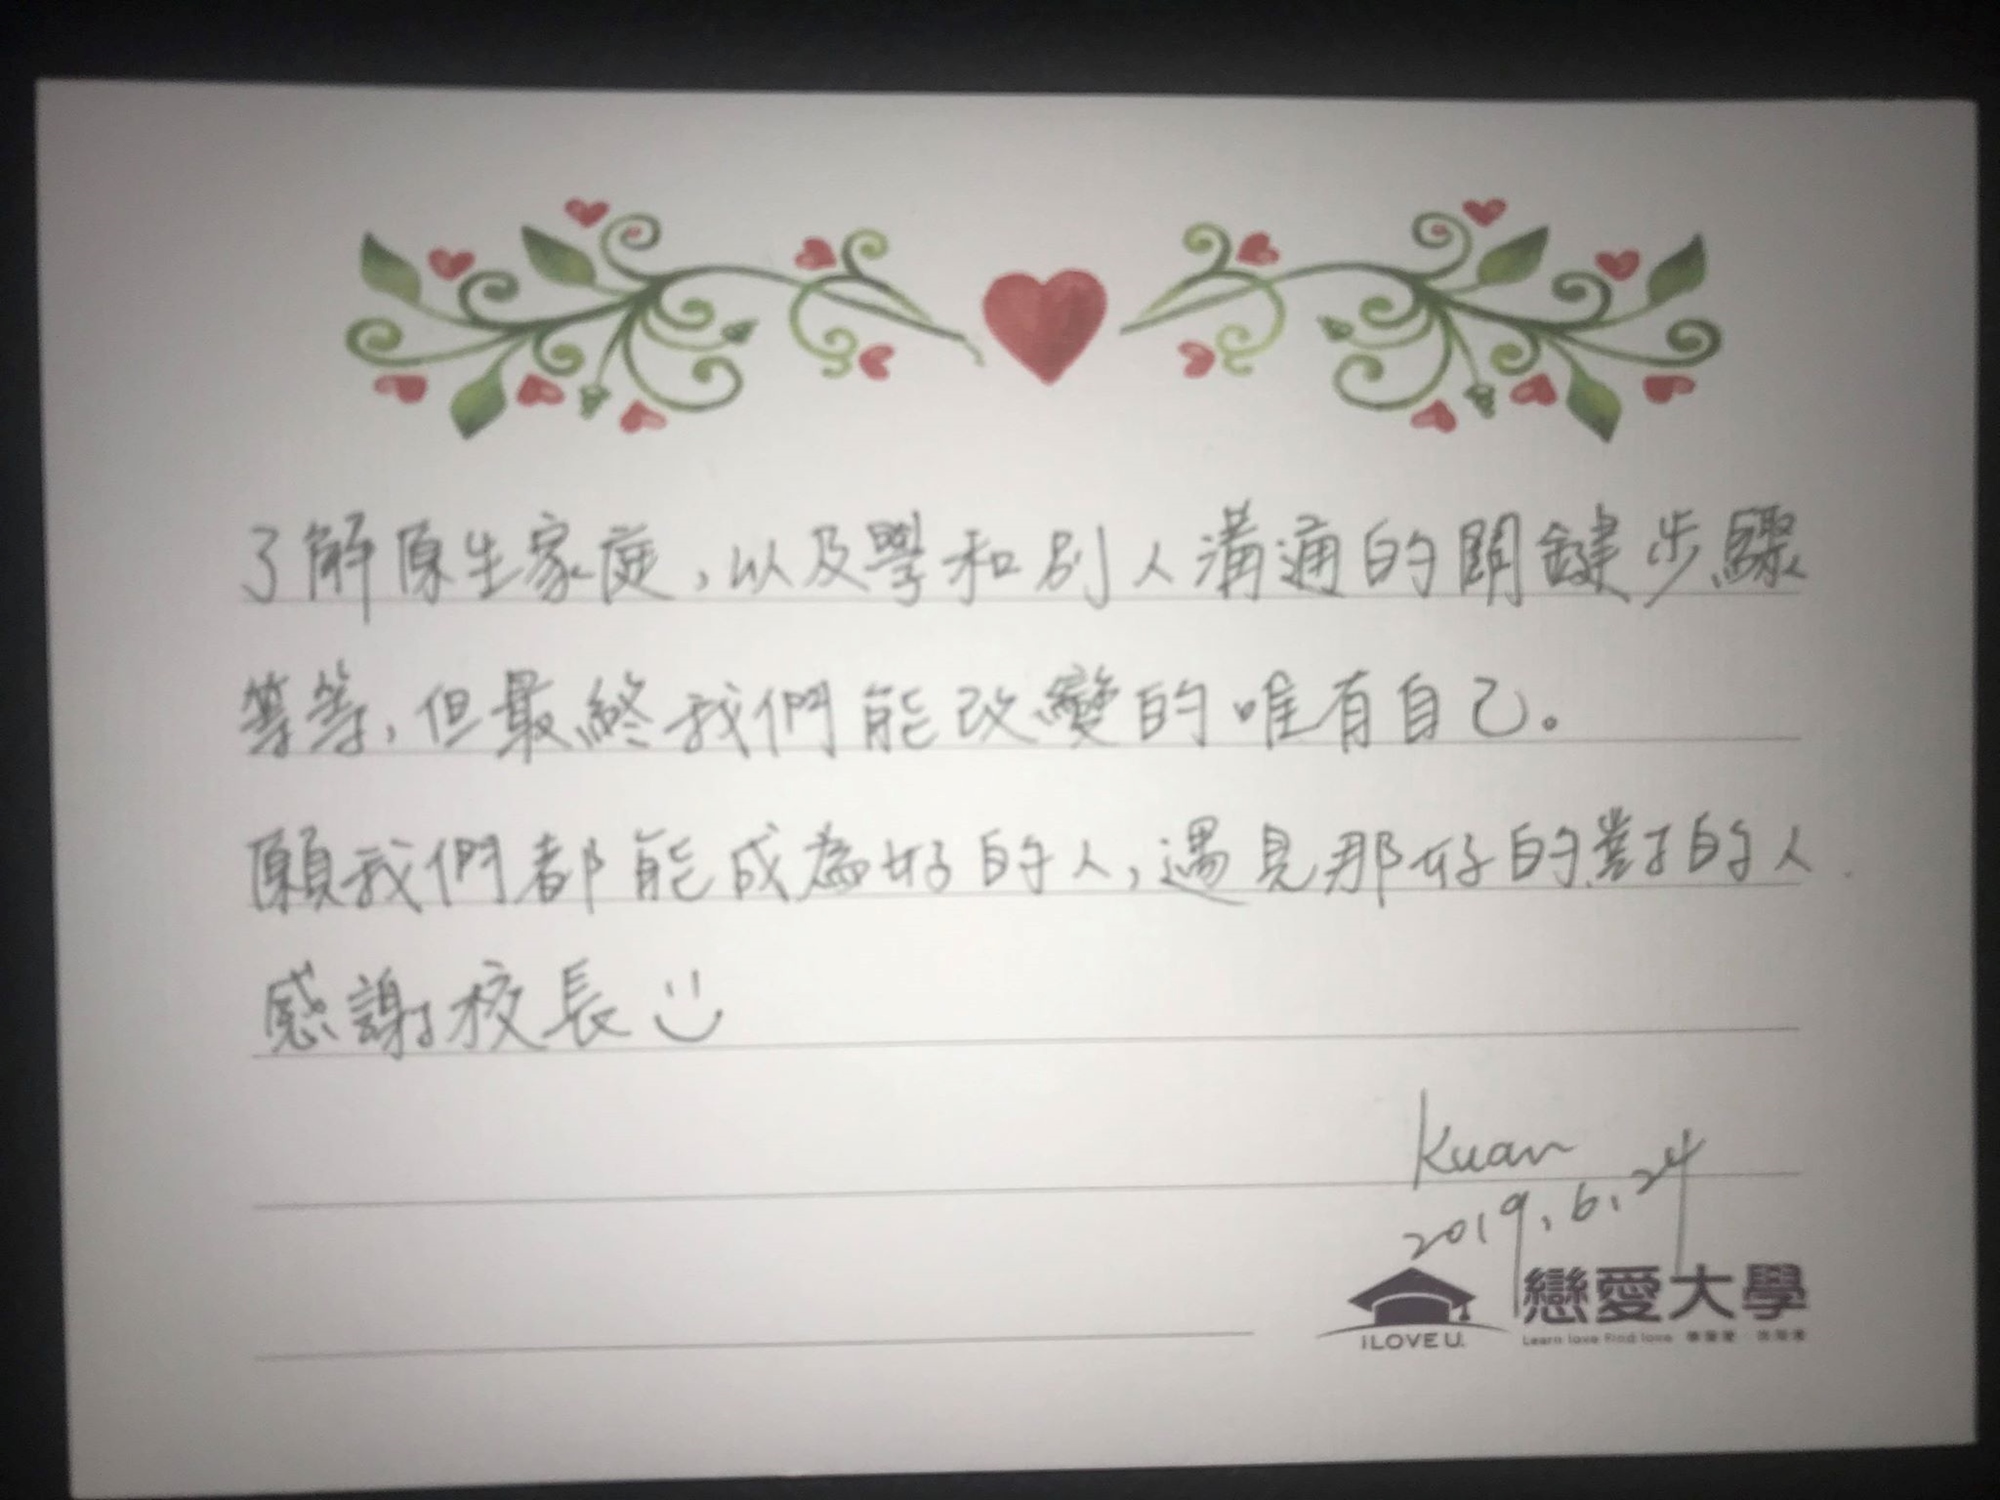 了解原生家庭，以及學和別人溝通的關鍵步驟
等等，但最終我們能改變的唯有自己。
願我們都能成為好的人，遇見那好的對的人.
感謝校長
Kuan
2019.6.24
戀愛大學
I LOVE U.
Learn love Find love